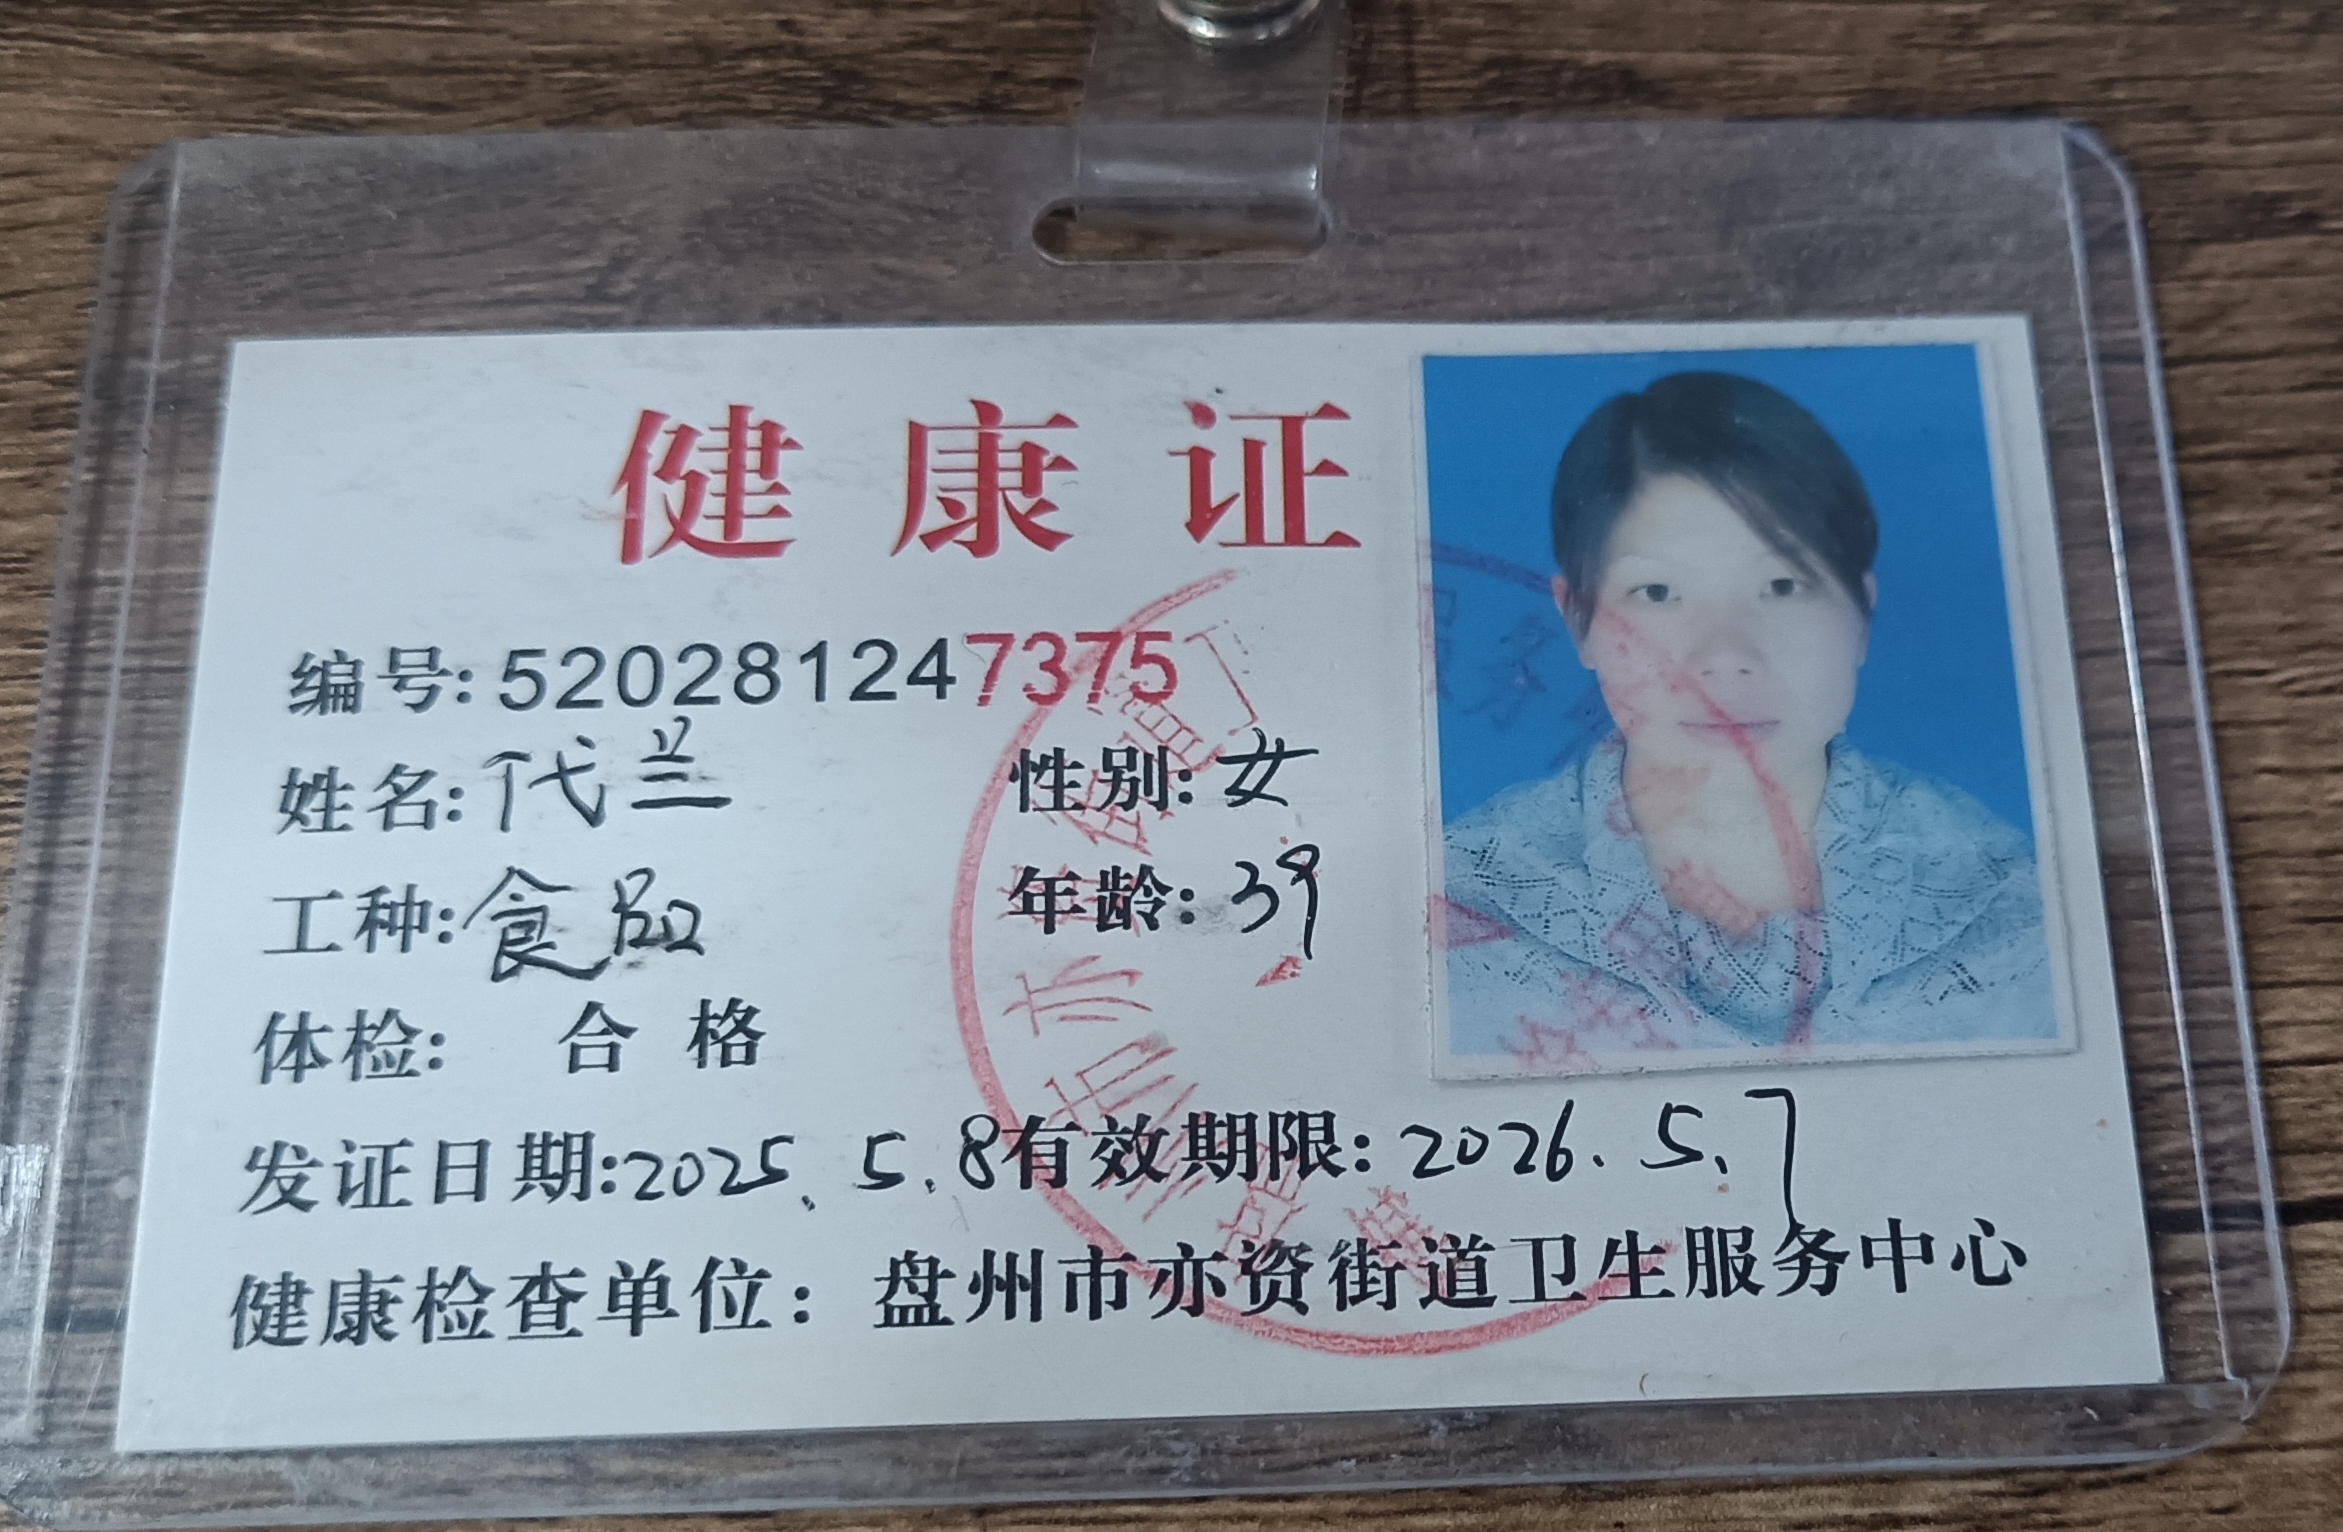 健康证
编号:520281247375
姓名:代兰 性别:女
工种:食品 年龄:39
体检: 合格
发证日期:2025.5.8有效期限:2026.5.7
健康检查单位:盘州市亦资街道卫生服务中心